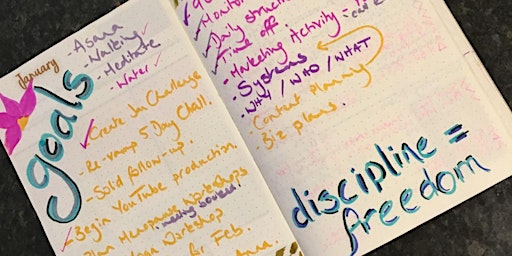 January
goals
- Asana
- Walking
- Meditate
- Water
Create Jan Challenge
- Re-vamp 5 Day Chall.
- Solid follow-up.
Begin YouTube production.
Plan Menopause Workshops
meeting worked!
Workshop
for Feb.
Daily structure
Time off
- Marketing Activity =
- Systems
- WHY / WHO / WHAT
- Content Planning
- Biz plans.
discipline =
freedom